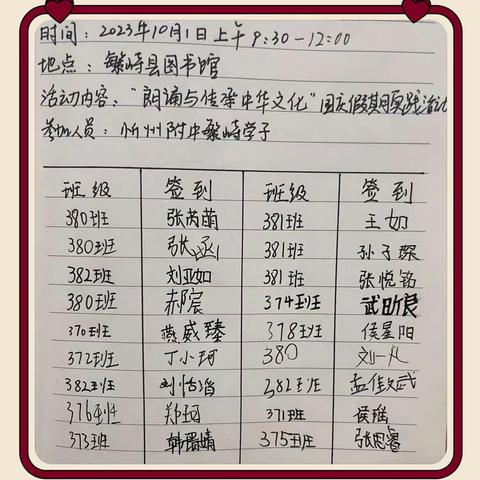 时间：2023年10月1日上午9:30-12:00
地点：繁峙县图书馆
活动内容："朗诵与传承中华文化"国庆假期实践活动
参加人员：忻州附中繁峙学子
班级 签到 班级 签到
380班 张芮萌 381班 王如
380班 张 381班 孙子琛
382班 刘亚如 381班 张悦铭
380班 郝宸 374班 武昕良
370班 燕威臻 378班 侯星阳
372班 丁小珂 380 刘一凡
382班 刘怡 382班 孟佳
376班 郑珂 371班 侯瑶
373班 韩婧 375班 张思睿